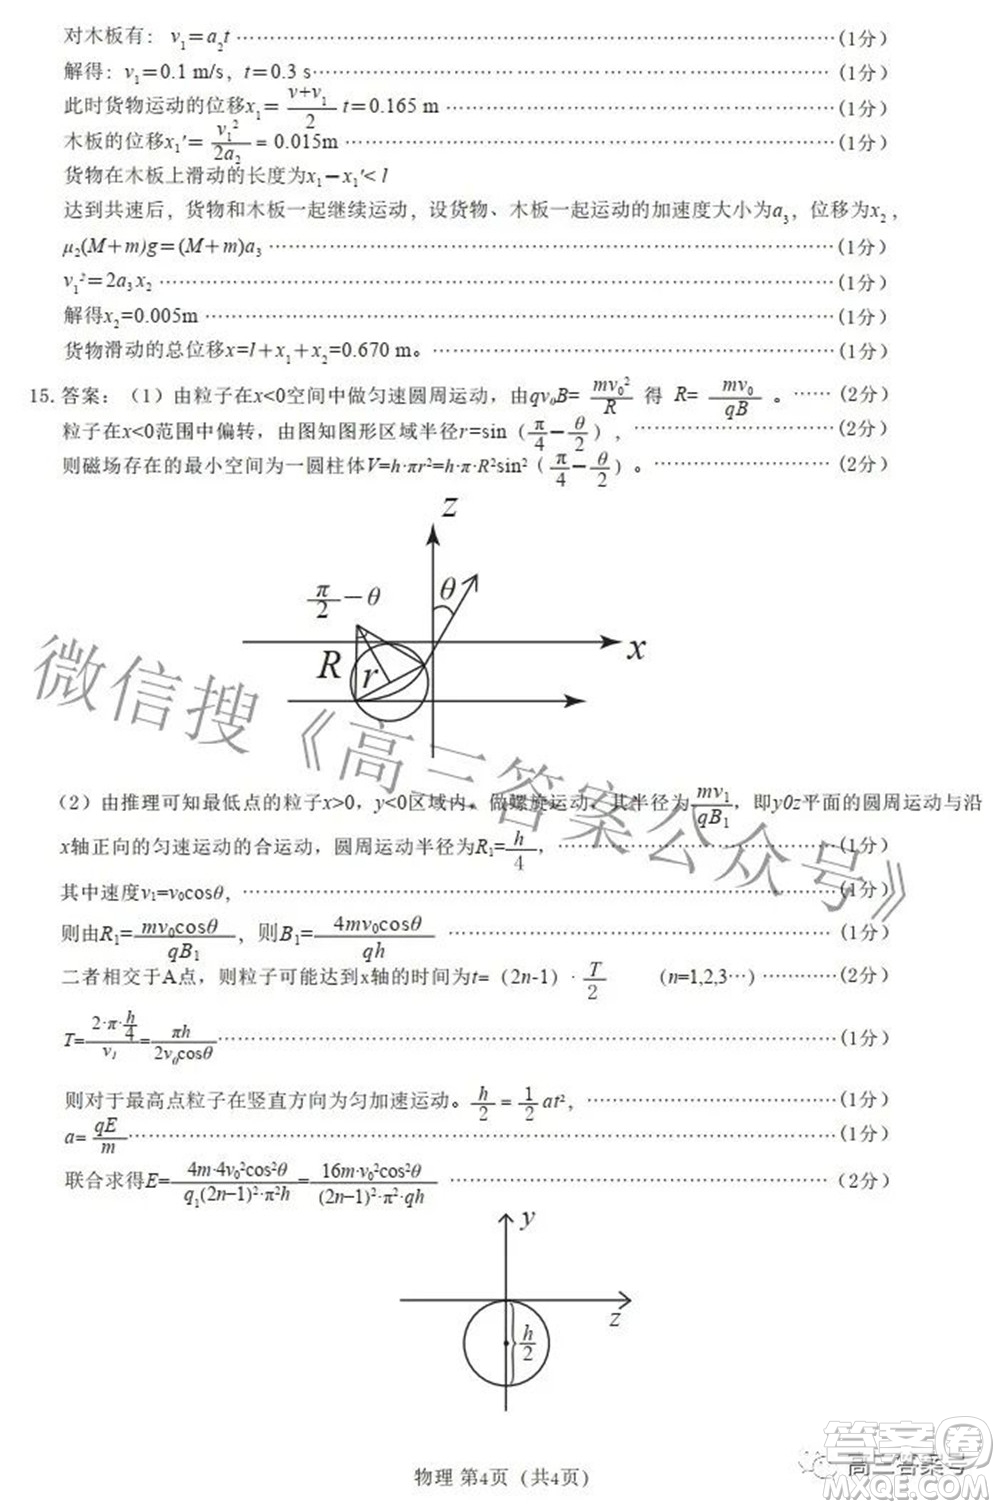 对木板有： v₁＝a₂t ……………………………(1分)
解得：v₁＝0.1 m/s，t＝0.3 s……………………………(1分)
此时货物运动的位移x₁＝(v+v₁)/2 t＝0.165 m ……………………………(1分)
木板的位移x₁′＝v₁²/2a₂ = 0.015m ……………………………(1分)
货物在木板上滑动的长度为x₁－x₁′< l
达到共速后，货物和木板一起继续运动，设货物、木板一起运动的加速度大小为a₃，位移为x₂，
μ₂(M＋m)g＝(M＋m)a₃ ……………………………(1分)
v₁²＝2a₃x₂ ……………………………(1分)
解得x₂＝0.005m ……………………………(1分)
货物滑动的总位移x=l＋x₁＋x₂＝0.670 m。……………………………(1分)
15.答案：（1）由粒子在x<0空间中做匀速圆周运动，由qv₀B= mv₀²/R 得 R= mv₀/qB 。……(2分)
粒子在x<0范围中偏转，由图知图形区域半径r=sin（π/4－θ/2），……………………(2分)
则磁场存在的最小空间为一圆柱体V=h·πr²=h·π·R²sin²（π/4－θ/2）。……………………(2分)
z
π/2－θ
θ
x
R
r
（2）由推理可知最低点的粒子x>0，y<0区域内。做螺旋运动。其半径为mv₁/qB₁，即y0z平面的圆周运动与沿
x轴正向的匀速运动的合运动，圆周运动半径为R₁=h/4，……………………………(1分)
其中速度v₁=v₀cosθ，……………………………(1分)
则由R₁=mv₀cosθ/qB₁，则B₁=4mv₀cosθ/qh ……………………………(1分)
二者相交于A点，则粒子可能达到x轴的时间为t=（2n-1）·T/2 (n=1,2,3…) …………(2分)
T=(2·π·h/4)/v₁=πh/2v₀cosθ……………………………(1分)
则对于最高点粒子在竖直方向为匀加速运动。h/2 = 1/2 at²，……………………(1分)
a= qE/m……………………………(1分)
联合求得E=4m·4v₀²cos²θ/q₁(2n−1)²·π²h=16m·v₀²cos²θ/(2n−1)²·π²·qh ……………………………(2分)
y
z
h/2
微信搜《高三答案公众号》
答案圈
高三答案号
物理 第4页（共4页）